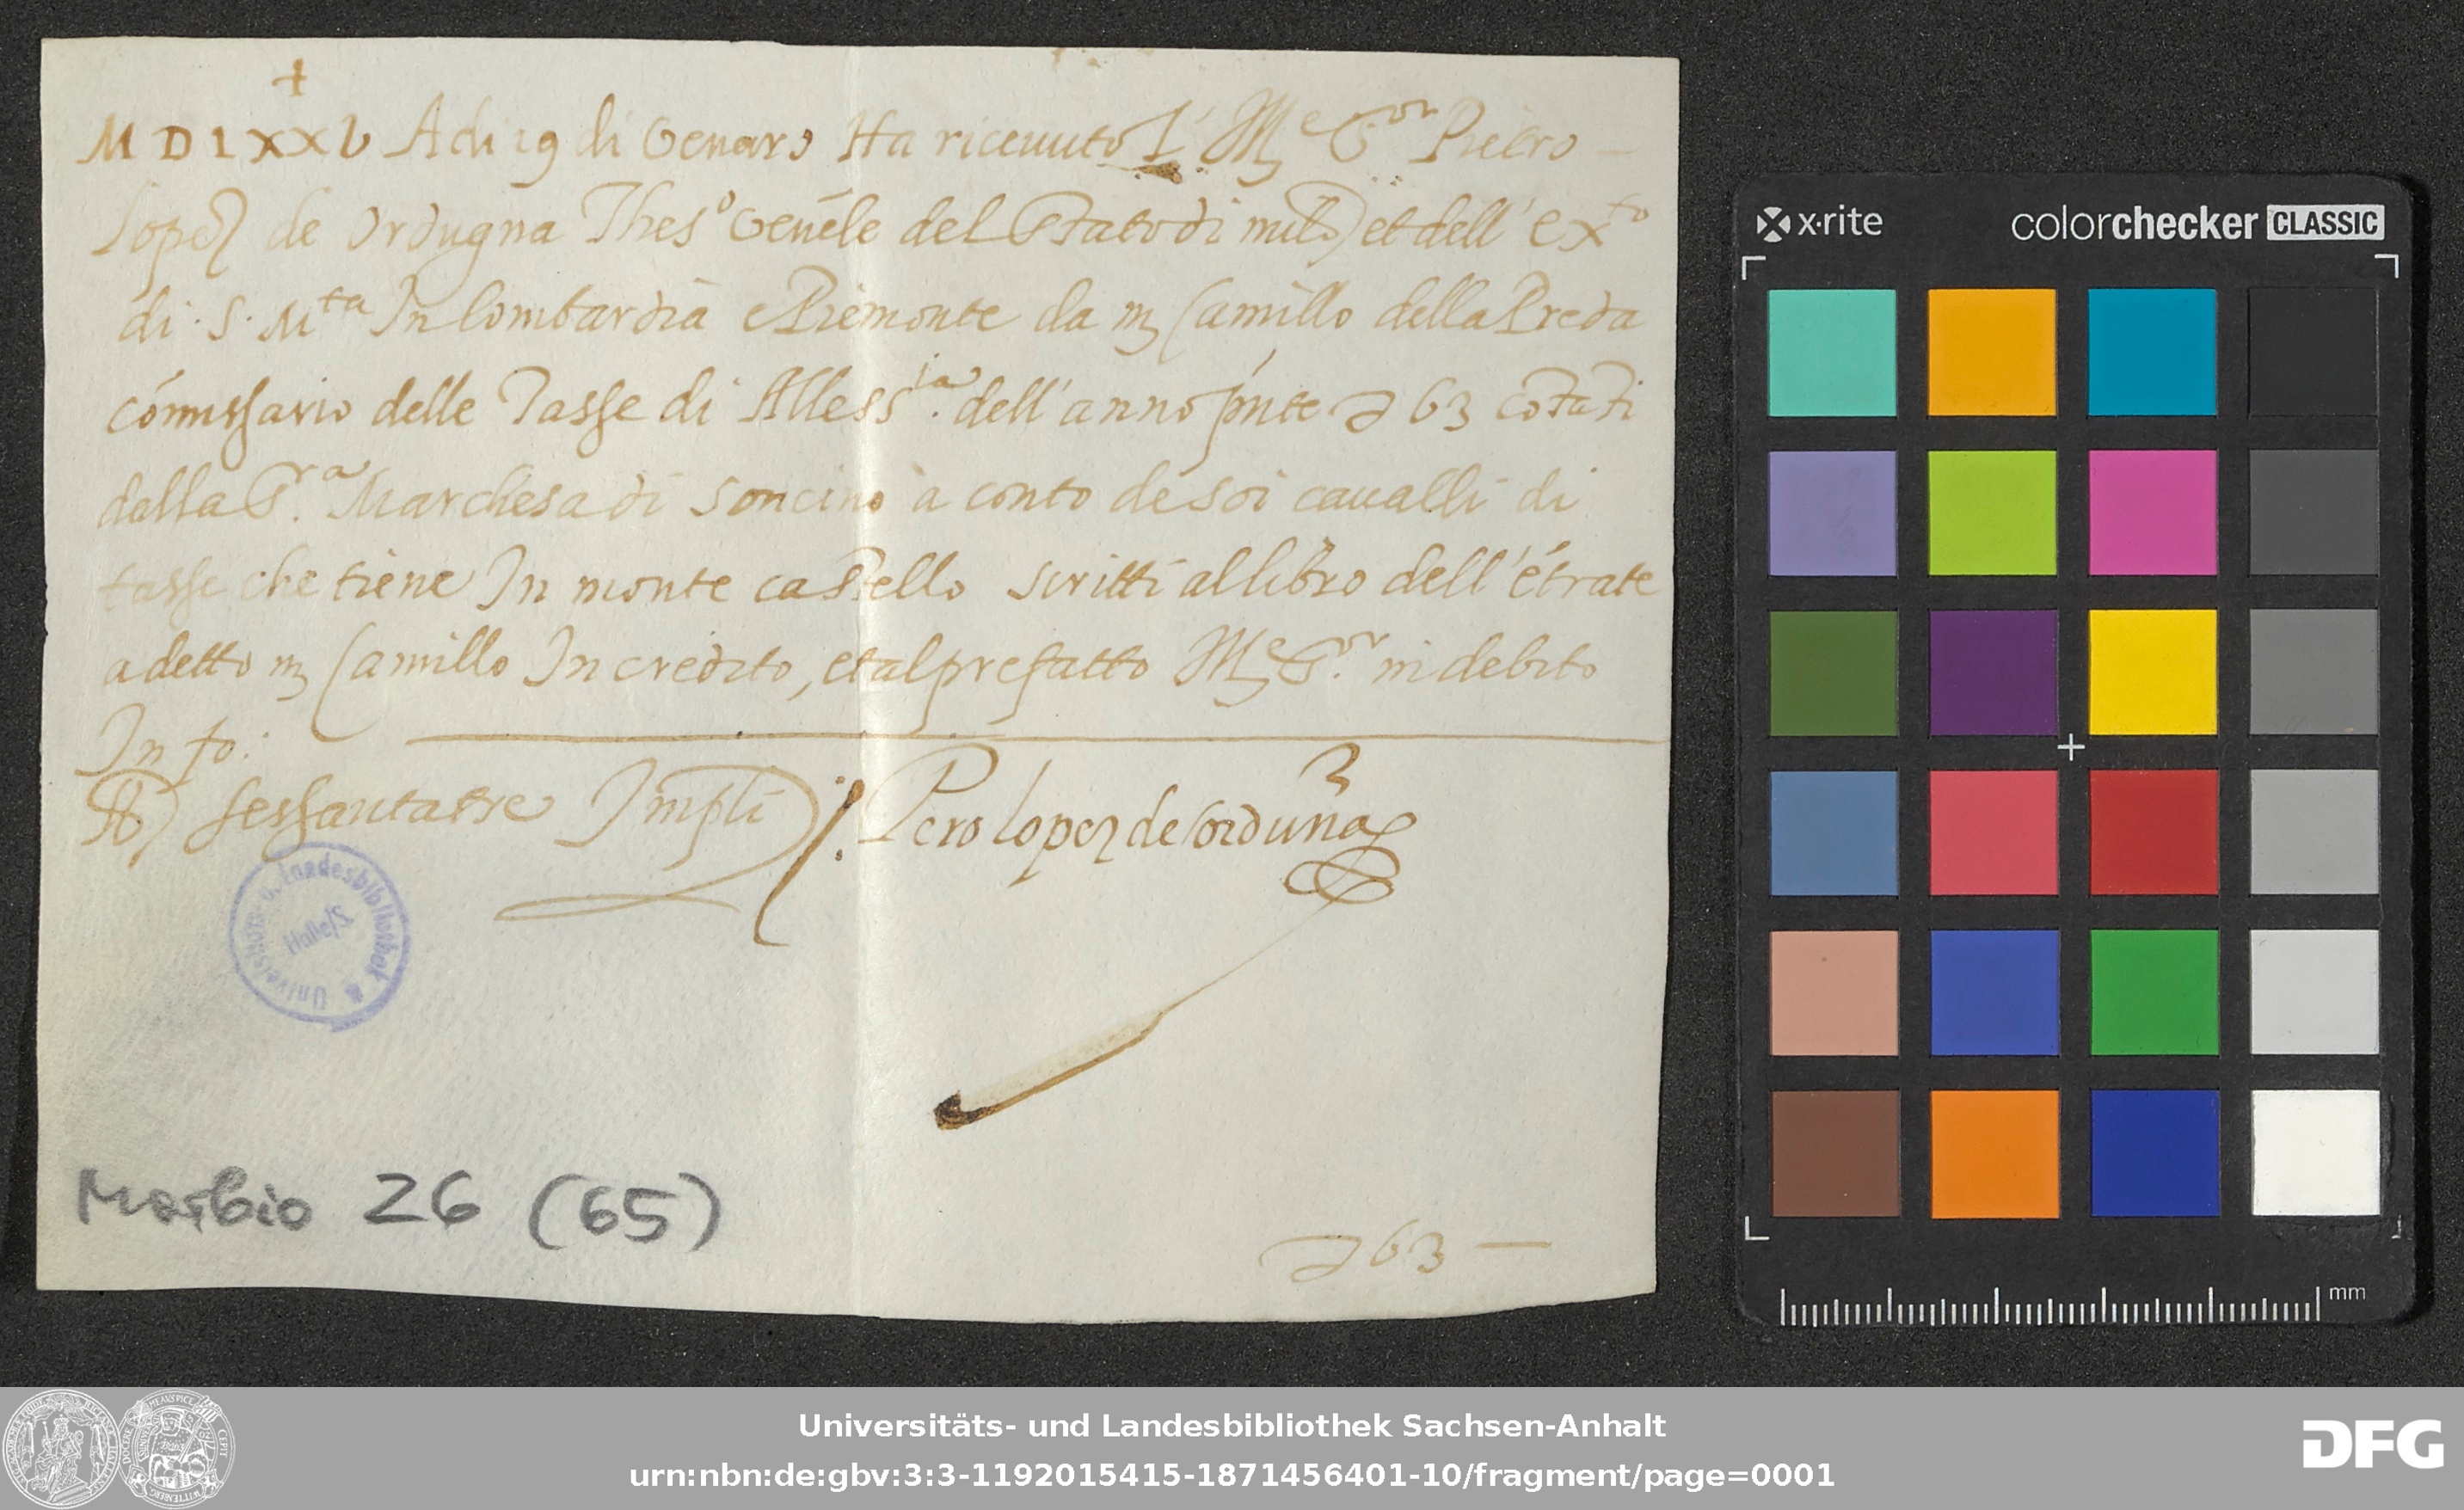 +
MDLXXV Adi 19 di Genaro Ha riceuuto L' M^e S^or Pietro –
lopez de Ordugna Thes^o Genéle del Stato di mil^o et dell' ex^to
di . S . M^ta In lombardia e Piemonte da m Camillo della Preda
cómissario delle Tasse di Aless^ia. dell' anno pñte 63 cotati
dalla S^ra. Marchesa di Soncino à conto de soi caualli di
tasse che tiene In monte castello scritti al libro dell' étrate
a detto m Camillo In credito, et al prefatto M^e S^or. in debito
In fo:
sessantatre Impli
Pero lopez de orduña
Universitäts- u. Landesbibliothek
Halle/S.
Morbio 26 (65)
63 —
x·rite colorchecker CLASSIC
mm
Universitäts- und Landesbibliothek Sachsen-Anhalt
urn:nbn:de:gbv:3:3-1192015415-1871456401-10/fragment/page=0001
DFG